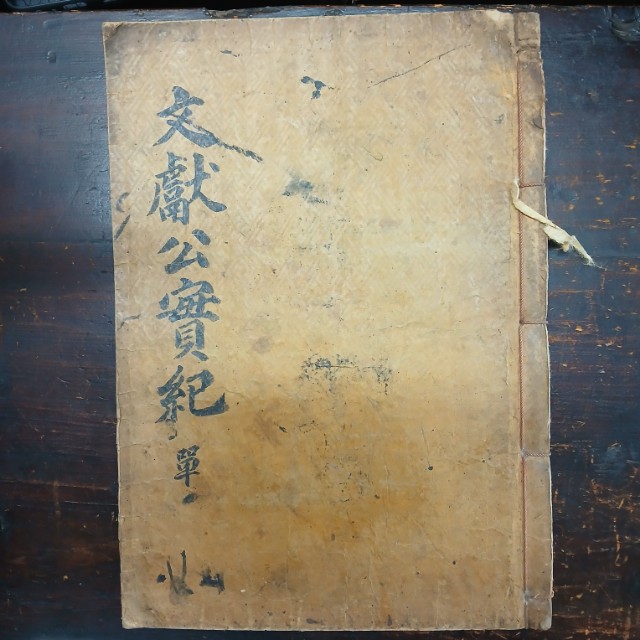 文獻公實紀
單